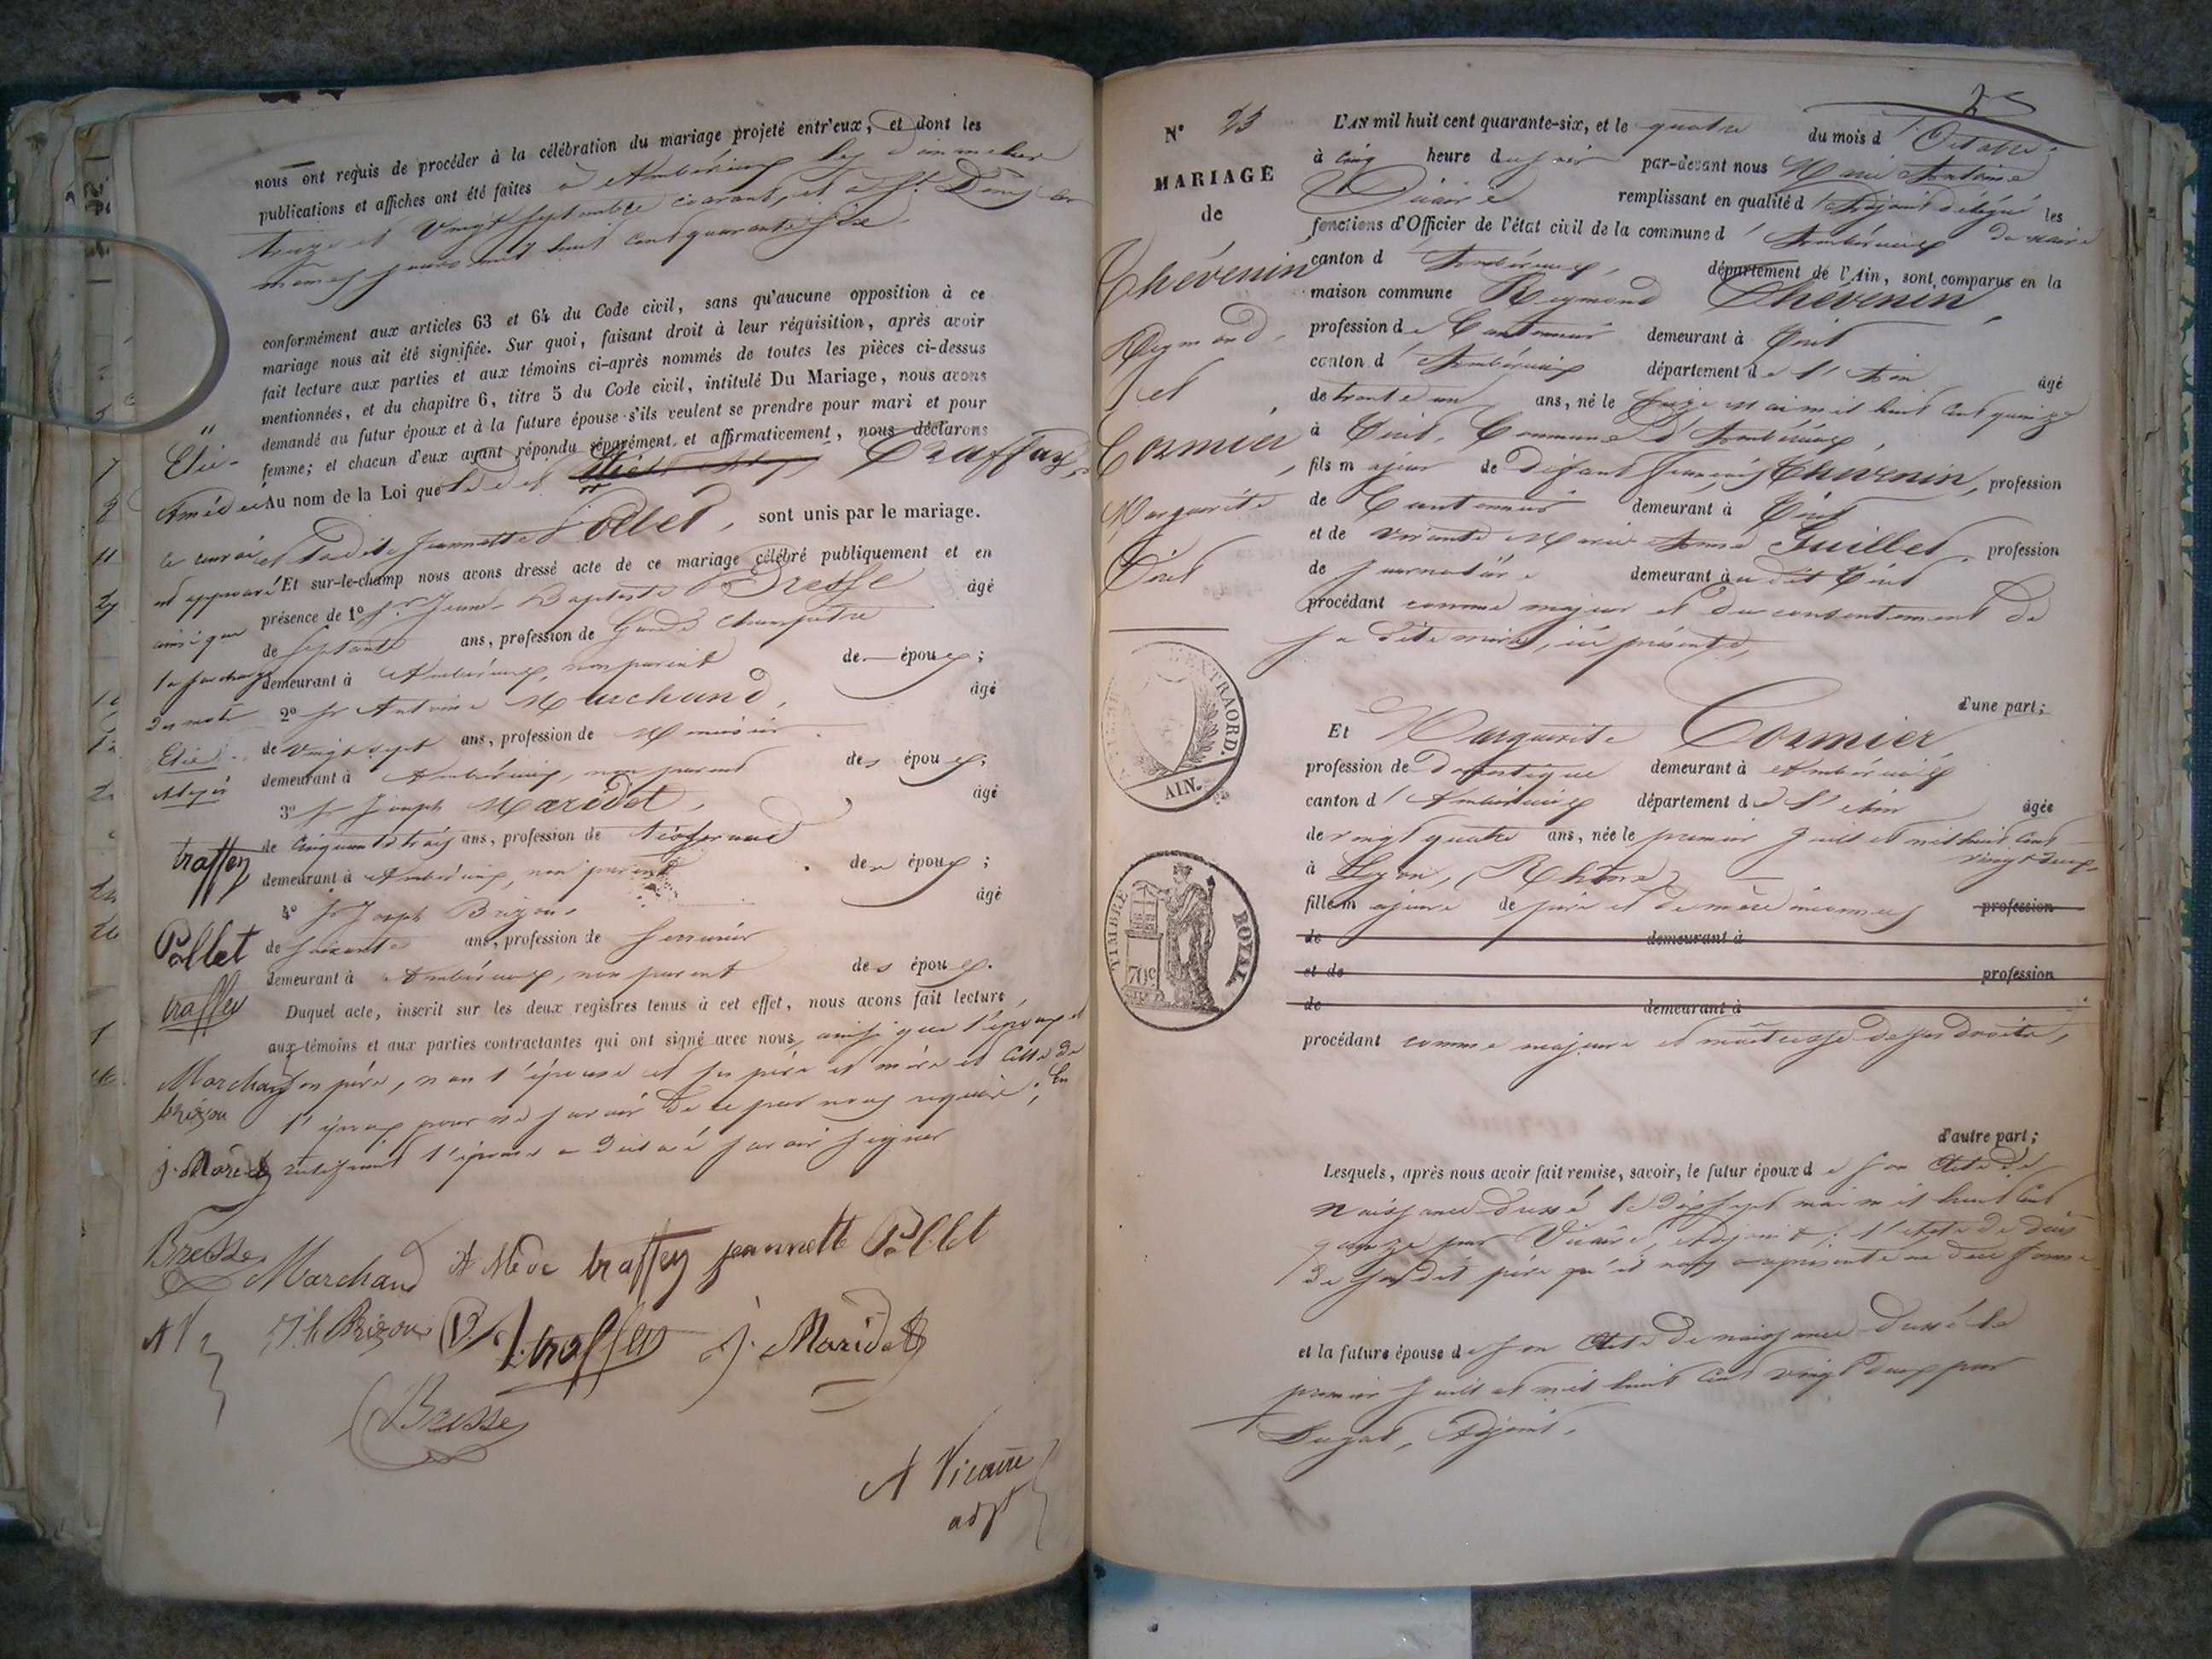 nous ont requis de procéder à la célébration du mariage projeté entr'eux, et dont les
publications et affiches ont été faites à Ambérieux les Dimanches
treize et Vingt Septembre courant, et à St. Denis les
mêmes jours mil huit cent quarante six
conformément aux articles 63 et 64 du Code civil, sans qu'aucune opposition à ce
mariage nous ait été signifiée. Sur quoi, faisant droit à leur réquisition, après avoir
fait lecture aux parties et aux témoins ci-après nommés de toutes les pièces ci-dessus
mentionnées, et du chapitre 6, titre 5 du Code civil, intitulé Du Mariage, nous avons
demandé au futur époux et à la future épouse s'ils veulent se prendre pour mari et pour
femme; et chacun d'eux ayant répondu séparément et affirmativement, nous déclarons
Au nom de la Loi que le dit Traffay
et la dite Jeannette Pollet, sont unis par le mariage.
Et sur-le-champ nous avons dressé acte de ce mariage célébré publiquement et en
présence de 1º Sr. Jean-Baptiste Bresse âgé
de septante ans, profession de Garde champêtre
demeurant à Ambérieux, non parent des époux;
2º Sr Antoine Marchand, âgé
de vingt sept ans, profession de Menuisier
demeurant à Ambérieux, non parent des époux;
3º Sr Joseph Maridet, âgé
de cinquante trois ans, profession de tisserand
demeurant à Ambérieux, non parent des époux;
4º Sr Joseph Brizon âgé
de soixante ans, profession de Serrurier
demeurant à Ambérieux, non parent des époux.
Duquel acte, inscrit sur les deux registres tenus à cet effet, nous avons fait lecture
aux témoins et aux parties contractantes qui ont signé avec nous, ainsi que l'époux et
son père, non l'épouse et ses père et mère et celle de
l'époux pour ne savoir de ce par nous requis; En
rectifiant l'épouse a déclaré savoir signer
Elie-
Amédée
ce renvoi
est approuvé
ainsi que
la surcharge
du mot
Elie
traffey
Pollet
traffey
Marchand
brizon
j. Maridet
Bresse
Marchand
A Mede traffey
jeannette Pollet
A V
J.h Brizon
traffey
J. Maridet
Bresse
A Vicaire
adjt
Nº 23
MARIAGE
de
Chévenin
Reymond
et
Cormier
Marguerite
L'EXTRAORD.
AIN.
TIMBRE ROYAL
70c
L'AN mil huit cent quarante-six, et le quatre du mois d'Octobre
à cinq heure du soir par-devant nous Marie Antoine
Vicaire remplissant en qualité d'Adjoint délégué les
fonctions d'Officier de l'état civil de la commune d'Ambérieux du maire
canton d'Ambérieux, département de l'Ain, sont comparus en la
maison commune Reymond Chévenin,
profession de Cantonnier demeurant à
canton d'Ambérieux département de l'Ain âgé
de trente un ans, né le seize mai mil huit cent quinze
à Commune d'Ambérieux,
fils majeur de défunt François Chévenin, profession
de Cantonnier demeurant à
et de vivante Marie Anne Guillet profession
de Journalière demeurant au dit
procédant comme majeur et du consentement de
sa dite mère, ici présente,
d'une part;
Et Marguerite Cormier,
profession de Domestique demeurant à Ambérieux
canton d'Ambérieux département de l'Ain âgée
de vingt quatre ans, née le premier Juillet mil huit cent
vingt deux,
à Lyon, (Rhône)
fille majeure de père et de mère inconnus profession
de demeurant à
et de profession
de demeurant à
procédant comme majeure et maîtresse de ses droits,
d'autre part;
Lesquels, après nous avoir fait remise, savoir, le futur époux de son Acte de
Naissance dressé le dix sept mai mil huit cent
quinze par Vicaire, Adjoint; l'acte de décès
de son dit père qu'il nous a représenté en due forme
et la future épouse de son Acte de naissance dressé le
premier Juillet mil huit cent vingt deux par
Dugat, Adjoint.